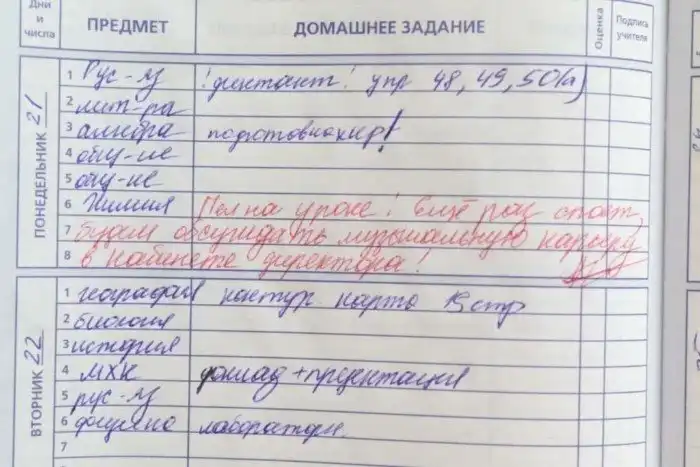 Дни и числа ПРЕДМЕТ ДОМАШНЕЕ ЗАДАНИЕ Оценка Подпись учителя
ПОНЕДЕЛЬНИК 21
1 Рус-яз !диктант! упр 48, 49, 50(а)
2 лит-ра
3 алгебра
4 общ-ие
5 общ-ие
6 Химия Пел на уроке! Ещё раз споет,
7 будем обсуждать музыкальную карьеру
8 в кабинете директора!
ВТОРНИК 22
1 география контур карта стр
2 биология
3 история
4 МХК доклад + презентация
5 рус-яз
6 физика лаборатори
7